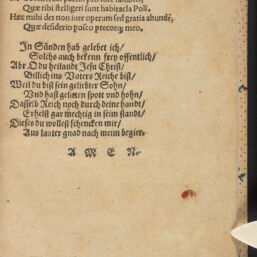 Quæ tibi stelligeri sunt habitacla Poli.
Hæc mihi des non iure operum sed gratia abundè,
Quæ desiderio posco precorq; meo.
In Sünden hab gelebet ich/
Solchs auch bekenn frey offentlich/
Abr O du heilandt Jesu Christ/
Billich ins Vaters Reiche bist/
Weil du bist sein geliebter Sohn/
Vnd hast gelitten spott vnd hohn/
Dasselb Reich noch durch deine handt/
Erhelst gar mechtig in seim standt/
Dieses du wollest schencken mir/
Aus lauter gnad nach meim begier.
A M E N.